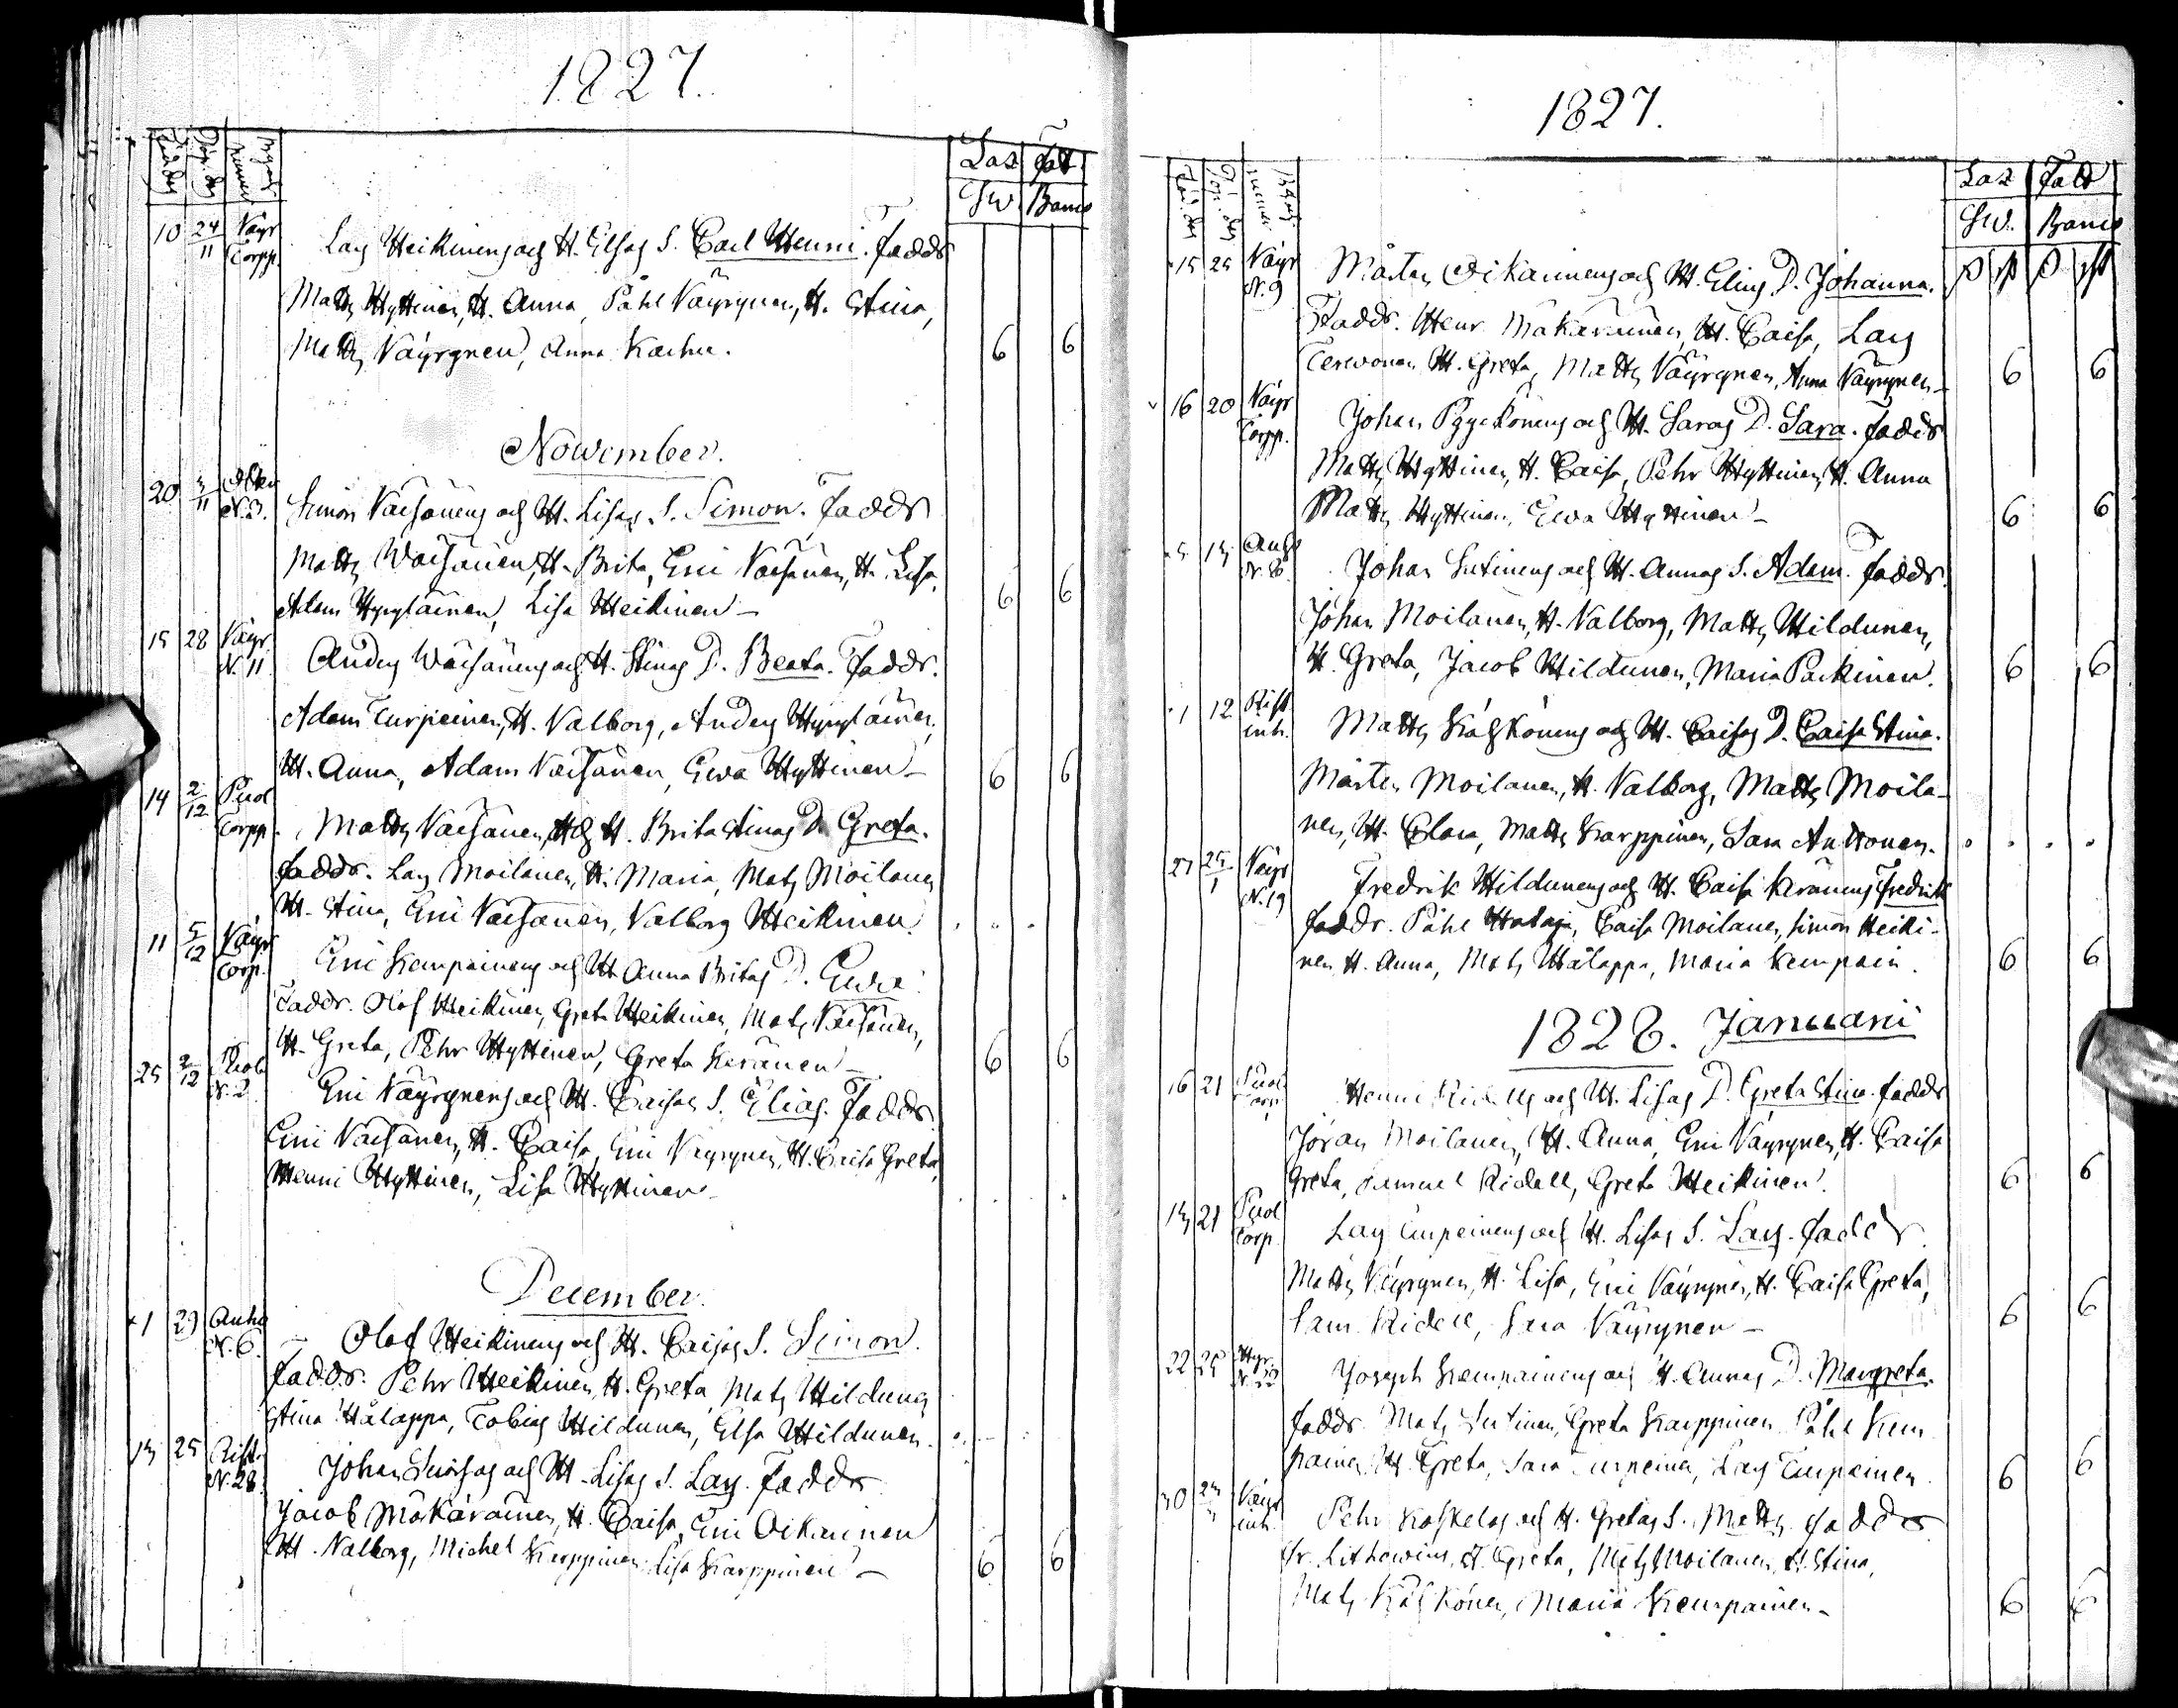 1827.
Las Fat
Sw. Banco
10 24/11 Väyr Torpp. Lars Heikinens och H. Elsas S. Carl Henric. Faddr
Matts Hyttinen, H. Anna, Påhl Väyrynen, H. Stina,
Matts Väyrynen, Anna Karhu. 6 6
November.
20 3/11 N.3. Simon Vaisänens och H. Lisas S. Simon. Faddr
Matts Waisänen, H. Brita, Eric Vaisänen, H. Lisa,
Adam Hyryläinen, Lisa Heikinen 6 6
15 28 Väyr. N. 11 Anders Waisänens och H. Stinas D. Beata. Faddr.
Adam Turpeinen, H. Valborg, Anders Hyryläinen,
H. Anna, Adam Vaisänen, Ewa Hyttinen 6 6
14 2/12 Puol Torpp. Matts Vaisänens, och H. Brita Stinas D. Greta.
Faddr. Lars Moilanen, H. Maria, Mats Moilanen
H. Stina, Eric Vaisänen, Valborg Heikinen
11 5/12 Väyr Torp. Eric Kempainens och H. Anna Britas D. Ewa.
Faddr. Olof Heikinen, Greta Heikinen, Mats Vaisänen,
H. Greta, Pehr Hyttinen, Greta Keränen 6 6
25 2/12 Puol N. 2 Eric Väyrynens och H. Caisas S. Elias. Faddr
Eric Vaisänen, H. Caisa, Eric Väyrynen, H. Caisa Greta,
Henric Hyttinen, Lisa Hyttinen
December.
1 29 Anho N. 6. Olof Heikinens och H. Caisas S. Simon.
Faddr. Pehr Heikinen, H. Greta, Mats Hildunen
Stina Hälappa, Tobias Hildunen, Elsa Hildunen.
13 25 Rist. N. 28. Johan och H. Lisas S. Lars. Faddr
Jacob Mäkäräinen, H. Caisa, Eric Oikarinen
H. Valborg, Michel Karppinen, Lisa Karppinen 6 6
1827.
Las Fatt
Sw. Banco
15 25 Väyr N. 9 Mårten Oikarinens och H. Elins D. Johanna.
Faddr. Henr Mäkäräinen, H. Caisa, Lars
Terwonen H. Greta, Matts Väyrynen, Anna Väyrynen 6 6
16 20 Väyr Torpp. Johan Pyykönens och H. Saras D. Sara. Faddr
Matts Hyttinen, H. Caisa, Pehr Hyttinen, H. Anna
Matts Hyttinen, Ewa Hyttinen 6 6
5 13 N. Johan Sutinens och H. Annas S. Adam. Faddr.
Johan Moilanen, H. Valborg, Matts Hildunen,
H. Greta, Jacob Hildunen, Maria Parkinen. 6 6
1 12 Rist inh. Matts Kähkönens och H. Caisas D. Caisa Stina.
Mårten Moilanen, H. Valborg, Matts Moila-
nen, H. Clara, Matts Karppinen, Sara Anttonen.
27 25/1 Väyr N. 19 Fredrik Hildunens och H. Caisa Keränens Fredrik
Faddr. Påhl Caisa Moilanen, Simon Heiki-
nen H. Anna, Mats Hälappa, Maria Kempain. 6 6
1828. Januarii
16 21 Puol Torp Henric Ridells och H. Lisas D. Greta Stina. Faddr
Jöran Moilanen, H. Anna, Eric Väyrynen, H. Caisa
Greta, Samuel Ridell, Greta Heikinen. 6 6
13 21 Puol Torp. Lars Turpeinens och H. Lisas S. Lars. Faddr.
Matts Väyrynen, H. Lisa, Eric Väyrynen, H. Caisa Greta,
Sam Ridell, Sara Väyrynen 6 6
22 25 Hyr. N. 22 Joseph Kempainens och H. Annas D. Margreta.
Faddr. Mats Sutinen, Greta Karppinen, Påhl Kem
painen, H. Greta, Sara Turpeinen, Lars Turpeinen 6 6
30 Väyr inh. Pehr Koskelas och H. Gretas S. Matts. Faddr
Lithowius, H. Greta, Mats Moilanen, H. Stina,
Mats Kähkönen, Maria Kempainen 6 6